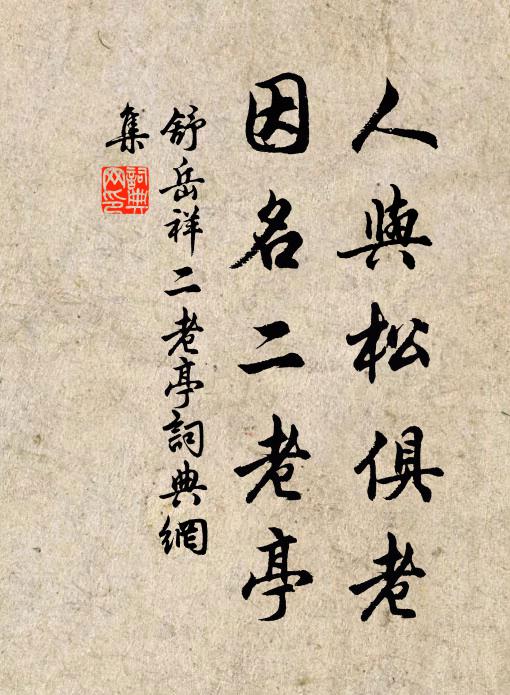 人與松俱老
因名二老亭
舒岳祥二老亭詞典網
集
詞典網印